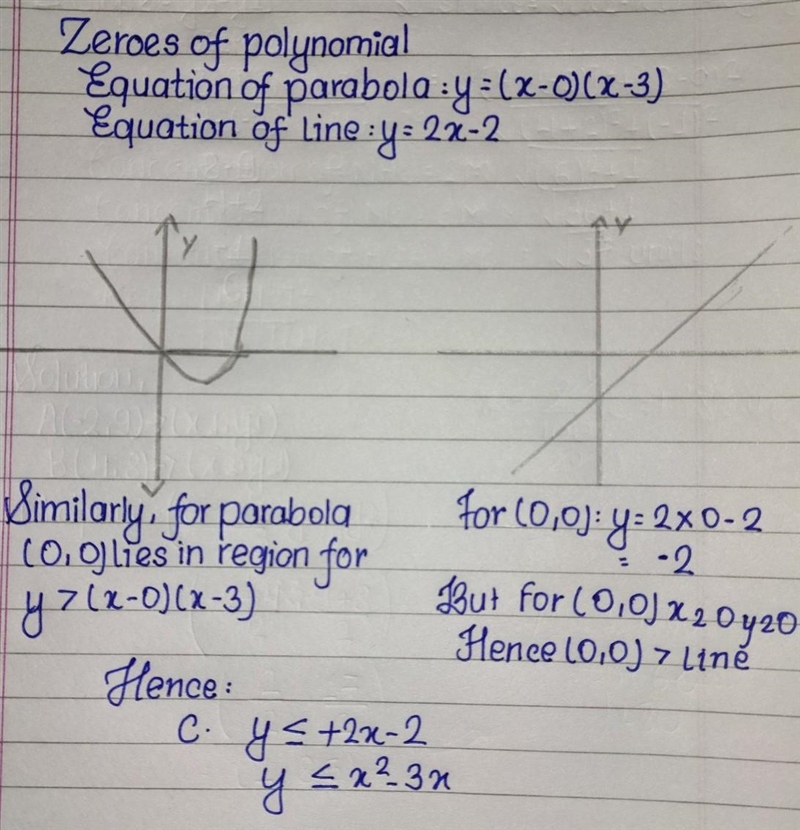 Zeroes of polynomial
Equation of parabola : y = (x-0)(x-3)
Equation of line : y = 2x-2
y
Y
Similarly, for parabola
(0,0) lies in region for
y > (x-0)(x-3)
For (0,0): y = 2x0-2
= -2
But for (0,0) x20 y20
Hence (0,0) > Line
Hence:
C. y ≤ +2x-2
y ≤ x²-3x